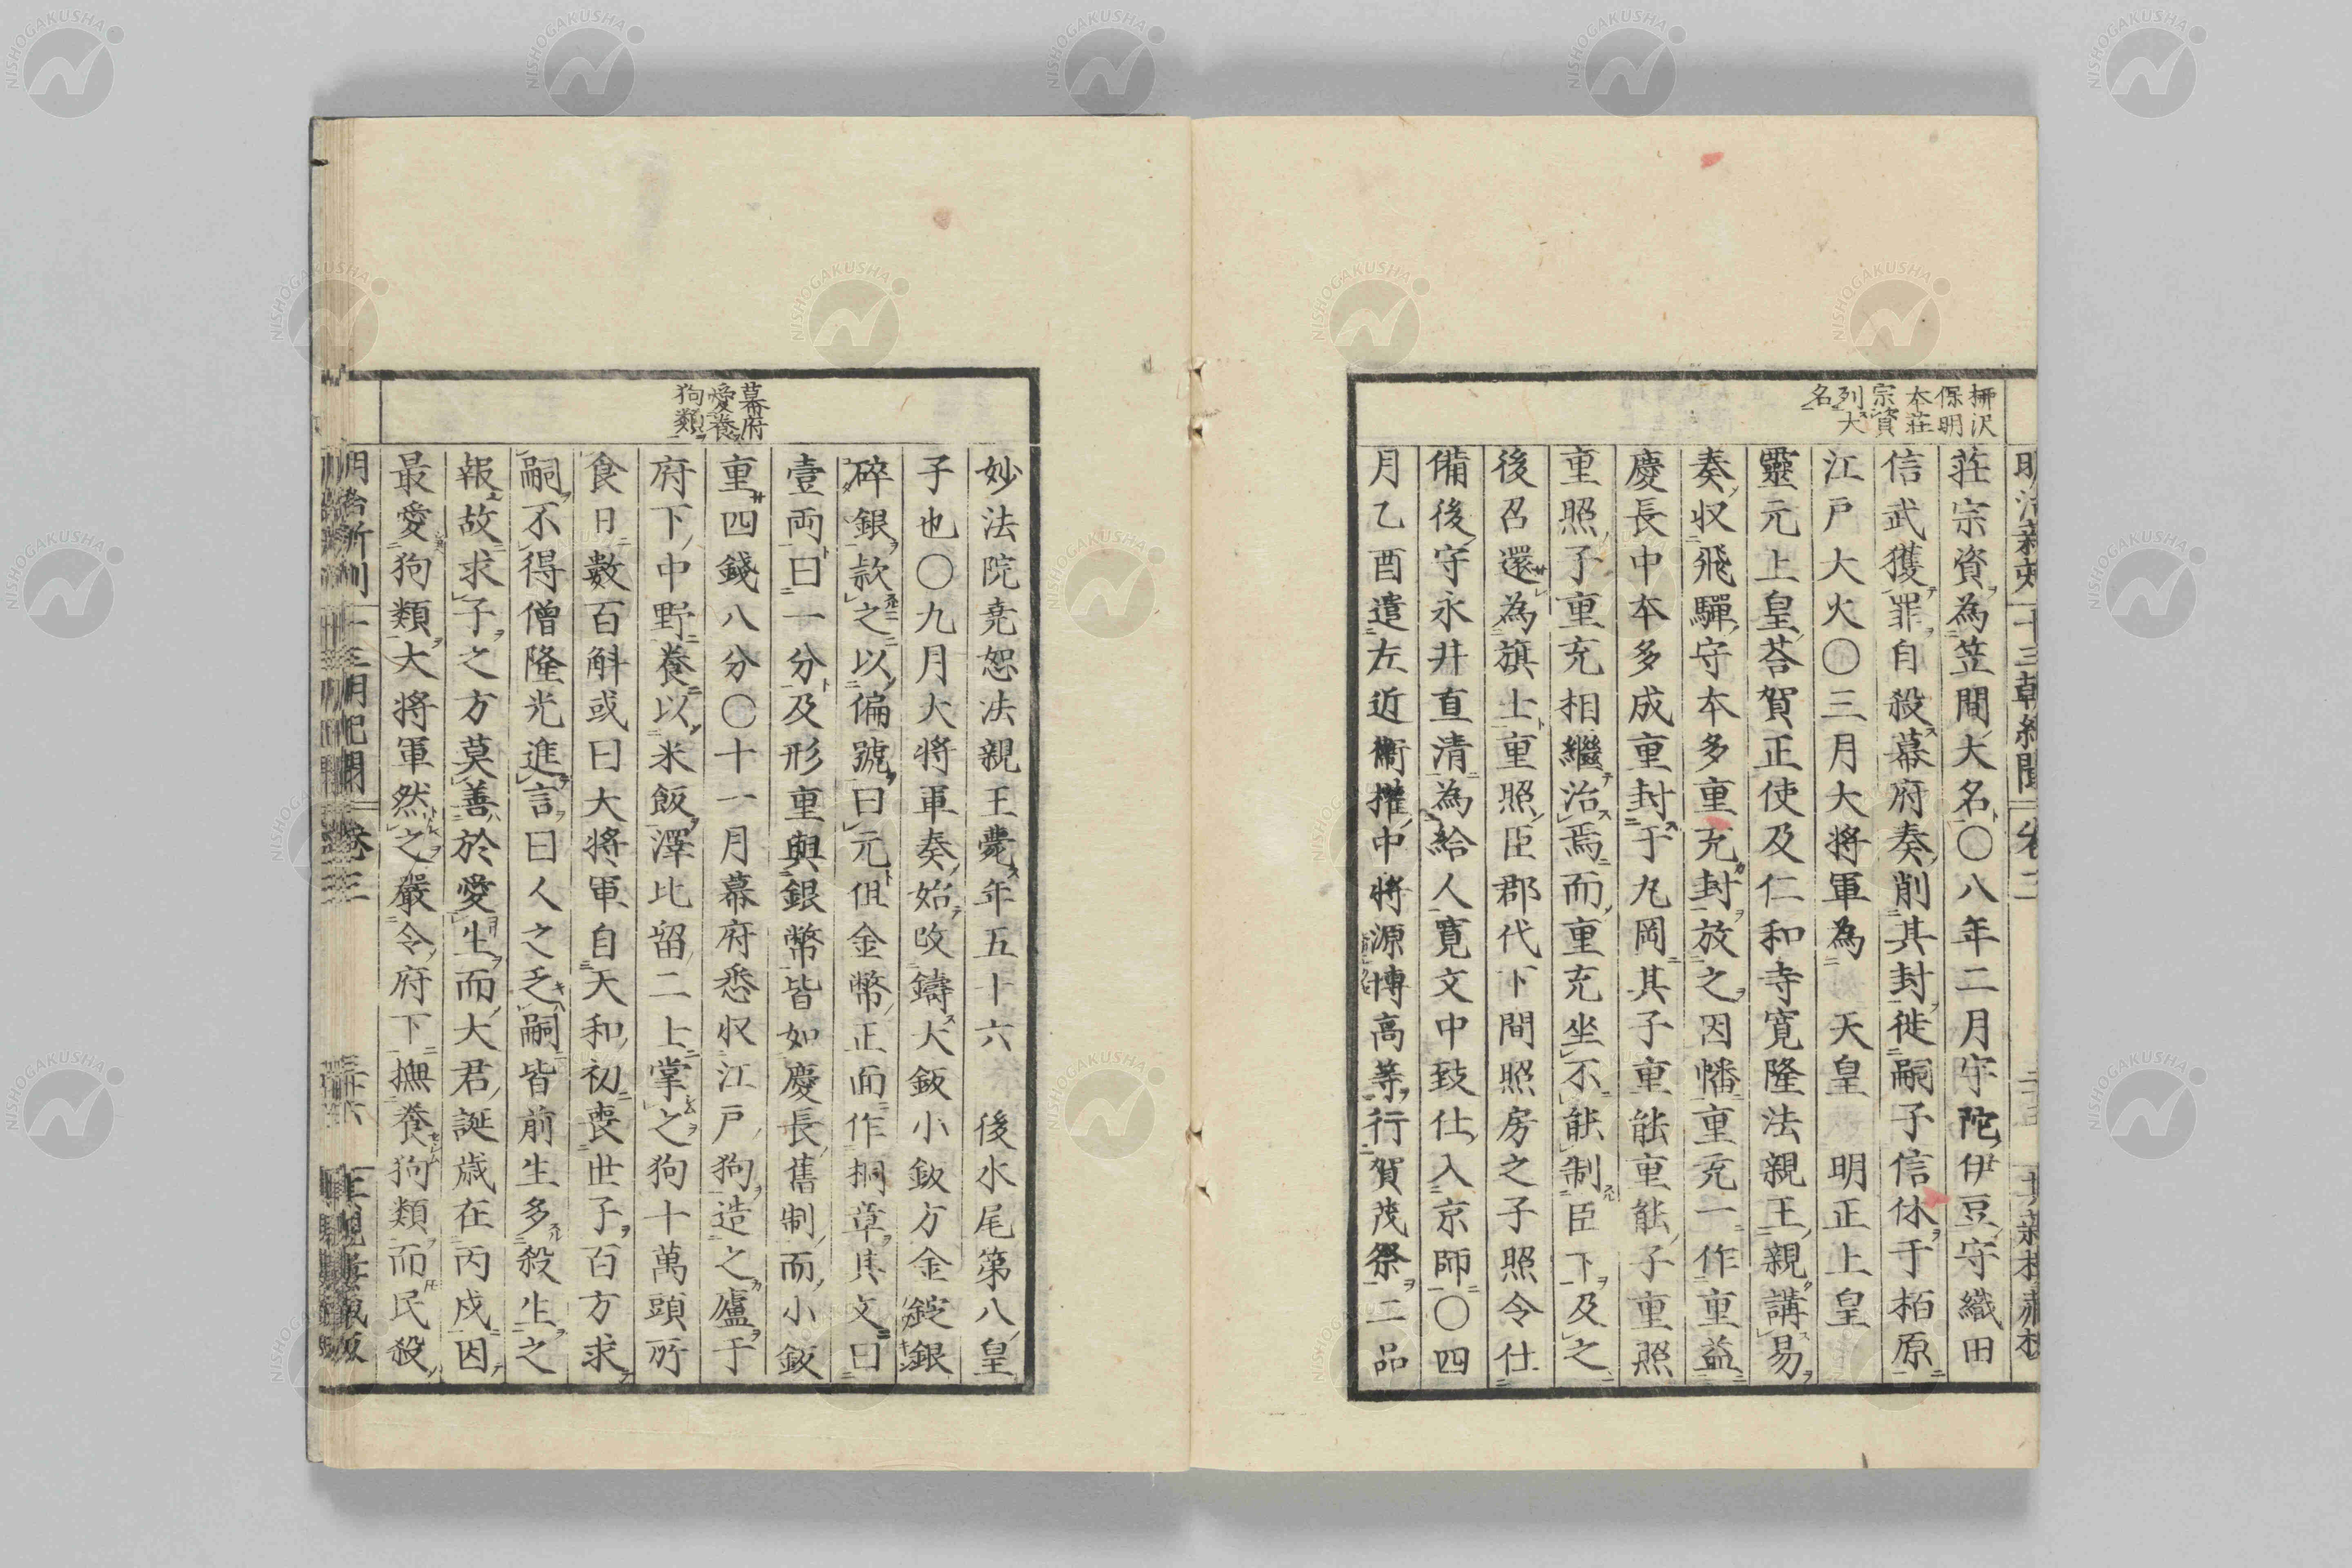 柳沢
保明
本荘
宗資
列大
名
荘宗資為笠間大名〇八年二月宇陀伊豆守織田
信武獲罪自殺幕府奏削其封徙嗣子信休于栢原
江戸大火〇三月大将軍為　天皇　明正上皇
靈元上皇荅賀正使及仁和寺寛隆法親王親講易
奏収飛騨守本多重充封放之因幡重充一作重益
慶長中本多成重封于丸岡其子重能重能子重照
重照子重充相繼治焉而重充坐不能制臣下及之
後召還為旗士重照臣郡代下間照房之子照令仕
備後守永井直清為給人寛文中致仕入京師〇四
月乙酉遣左近衛権中将源博高等行賀茂祭二品
幕府
愛養
狗類
妙法院尭恕法親王薨年五十六　後水尾第八皇
子也〇九月大将軍奏始改鑄大鈑小鈑方金錠銀
碎銀款之以偏號曰元但金幣正面作桐章其文曰
壹両曰一分及形重與銀幣皆如慶長舊制而小鈑
重四錢八分〇十一月幕府悉収江戸狗造之廬于
府下中野養以米飯澤比留二上掌之狗十萬頭所
食日數百斛或曰大將軍自天和初喪世子百方求
嗣不得僧隆光進言曰人之乏嗣皆前生多殺生之
報故求子之方莫善於愛生而大君誕歳在丙戍因
最愛狗類大将軍然之嚴令府下撫養狗類而民殺